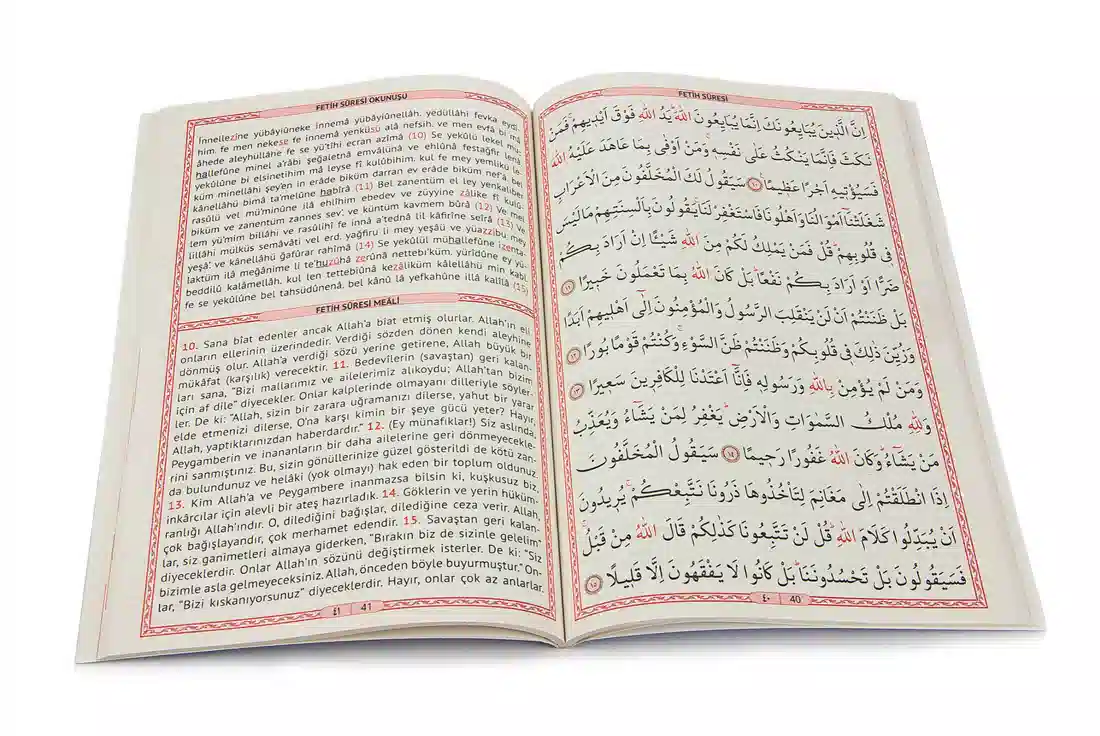 FETİH SÛRESİ
اِنَّ الَّذ۪ينَ يُبَايِعُونَكَ اِنَّمَا يُبَايِعُونَ اللّٰهَۜ يَدُ اللّٰهِ فَوْقَ اَيْد۪يهِمْۚ فَمَنْ
نَكَثَ فَاِنَّمَا يَنْكُثُ عَلٰى نَفْسِه۪ۚ وَمَنْ اَوْفٰى بِمَا عَاهَدَ عَلَيْهُ اللّٰهَ
فَسَيُؤْت۪يهِ اَجْرًا عَظ۪يمًا۟ ﴿١٠﴾ سَيَقُولُ لَكَ الْمُخَلَّفُونَ مِنَ الْاَعْرَابِ
شَغَلَتْنَٓا اَمْوَالُنَا وَاَهْلُونَا فَاسْتَغْفِرْ لَنَاۚ يَقُولُونَ بِاَلْسِنَتِهِمْ مَا لَيْسَ
ف۪ي قُلُوبِهِمْۜ قُلْ فَمَنْ يَمْلِكُ لَكُمْ مِنَ اللّٰهِ شَيْـًٔا اِنْ اَرَادَ بِكُمْ
ضَرًّا اَوْ اَرَادَ بِكُمْ نَفْعًاۜ بَلْ كَانَ اللّٰهُ بِمَا تَعْمَلُونَ خَب۪يرًا ﴿١١﴾
بَلْ ظَنَنْتُمْ اَنْ لَنْ يَنْقَلِبَ الرَّسُولُ وَالْمُؤْمِنُونَ اِلٰٓى اَهْل۪يهِمْ اَبَدًا
وَزُيِّنَ ذٰلِكَ ف۪ي قُلُوبِكُمْ وَظَنَنْتُمْ ظَنَّ السَّوْءِۚ وَكُنْتُمْ قَوْمًا بُورًا ﴿١٢﴾
وَمَنْ لَمْ يُؤْمِنْ بِاللّٰهِ وَرَسُولِه۪ فَاِنَّٓا اَعْتَدْنَا لِلْكَافِر۪ينَ سَع۪يرًا ﴿١٣﴾
وَلِلّٰهِ مُلْكُ السَّمٰوَاتِ وَالْاَرْضِۜ يَغْفِرُ لِمَنْ يَشَٓاءُ وَيُعَذِّبُ
مَنْ يَشَٓاءُۜ وَكَانَ اللّٰهُ غَفُورًا رَح۪يمًا ﴿١٤﴾ سَيَقُولُ الْمُخَلَّفُونَ
اِذَا انْطَلَقْتُمْ اِلٰى مَغَانِمَ لِتَأْخُذُوهَا ذَرُونَا نَتَّبِعْكُمْۚ يُر۪يدُونَ
اَنْ يُبَدِّلُوا كَلَامَ اللّٰهِۜ قُلْ لَنْ تَتَّبِعُونَا كَذٰلِكُمْ قَالَ اللّٰهُ مِنْ قَبْلُۚ
فَسَيَقُولُونَ بَلْ تَحْسُدُونَنَاۜ بَلْ كَانُوا لَا يَفْقَهُونَ اِلَّا قَل۪يلًا ﴿١٥﴾
٤٠ 40
FETİH SÛRESİ OKUNUŞU
İnnellezîne yübâyiûneke innemâ yübâyiûnellâh, yedüllâhi fevka eydî-
him, fe men nekese fe innemâ yenküsü alâ nefsih, ve men evfâ bi mâ
âhede aleyhullâhe fe se yü'tîhi ecran azîmâ (10) Se yekûlü lekel mu-
hallefûne minel a'râbi şeğaletnâ emvâlünâ ve ehlûnâ festağfir lenâ,
yekûlûne bi elsinetihim mâ leyse fî kulûbihim, kul fe mey yemlikü le-
küm minellâhi şey'en in erâde biküm darran ev erâde biküm nef'â, bel
kânellâhü bimâ ta'melûne habîrâ (11) Bel zanentüm el ley yenkaliber
rasûlü vel mü'minûne ilâ ehlîhim ebedev ve züyyine zâlike fî kulû-
biküm ve zanentüm zannes sev', ve küntüm kavmem bûrâ (12) Ve mel
lem yü'mim billâhi ve rasûlihî fe innâ a'tednâ lil kâfirîne seîrâ (13) Ve
lillâhi mülküs semâvâti vel erd, yağfiru li mey yeşâü ve yüazzibu mey
yeşâ', ve kânellâhü ğafûrar rahîmâ (14) Se yekûlül muhallefûne izenta-
laktüm ilâ meğânime li te'huzûhâ zerûnâ nettebi'küm, yürîdûne ey yü-
beddilû kelâmellâh, kul len tettebiûnâ kezâliküm kâlellâhü min kabl,
fe se yekûlûne bel tahsüdûnenâ, bel kânû lâ yefkahûne illâ kalîlâ (15)
FETİH SÛRESİ MEÂLİ
10. Sana bîat edenler ancak Allah'a biat etmiş olurlar. Allah'ın eli
onların ellerinin üzerindedir. Verdiği sözden dönen kendi aleyhine
dönmüş olur. Allah'a verdiği sözü yerine getirene, Allah büyük bir
mükâfat (karşılık) verecektir. 11. Bedevîlerin (savaştan) geri kalan-
ları sana, "Bizi mallarımız ve ailelerimiz alıkoydu; Allah'tan bizim
için af dile" diyecekler. Onlar kalplerinde olmayanı dilleriyle söyler-
ler. De ki: "Allah, sizin bir zarara uğramanızı dilerse, yahut bir yarar
elde etmenizi dilerse, O'na karşı kimin bir şeye gücü yeter? Hayır,
Allah, yaptıklarınızdan haberdardır." 12. (Ey münafıklar!) Siz aslında,
Peygamberin ve inananların bir daha ailelerine geri dönmeyecekle-
rini sanmıştınız. Bu, sizin gönüllerinize güzel gösterildi de kötü zan-
da bulundunuz ve helâki (yok olmayı) hak eden bir toplum oldunuz.
13. Kim Allah'a ve Peygambere inanmazsa bilsin ki, kuşkusuz biz,
inkârcılar için alevli bir ateş hazırladık. 14. Göklerin ve yerin hüküm-
ranlığı Allah'ındır. O, dilediğini bağışlar, dilediğine ceza verir. Allah,
çok bağışlayandır, çok merhamet edendir. 15. Savaştan geri kalan-
lar, siz ganimetleri almaya giderken, "Bırakın biz de sizinle gelelim"
diyeceklerdir. Onlar Allah'ın sözünü değiştirmek isterler. De ki: "Siz
bizimle asla gelmeyeceksiniz. Allah, önceden böyle buyurmuştur." On-
lar, "Bizi kıskanıyorsunuz" diyeceklerdir. Hayır, onlar çok az anlarlar.
٤١ 41